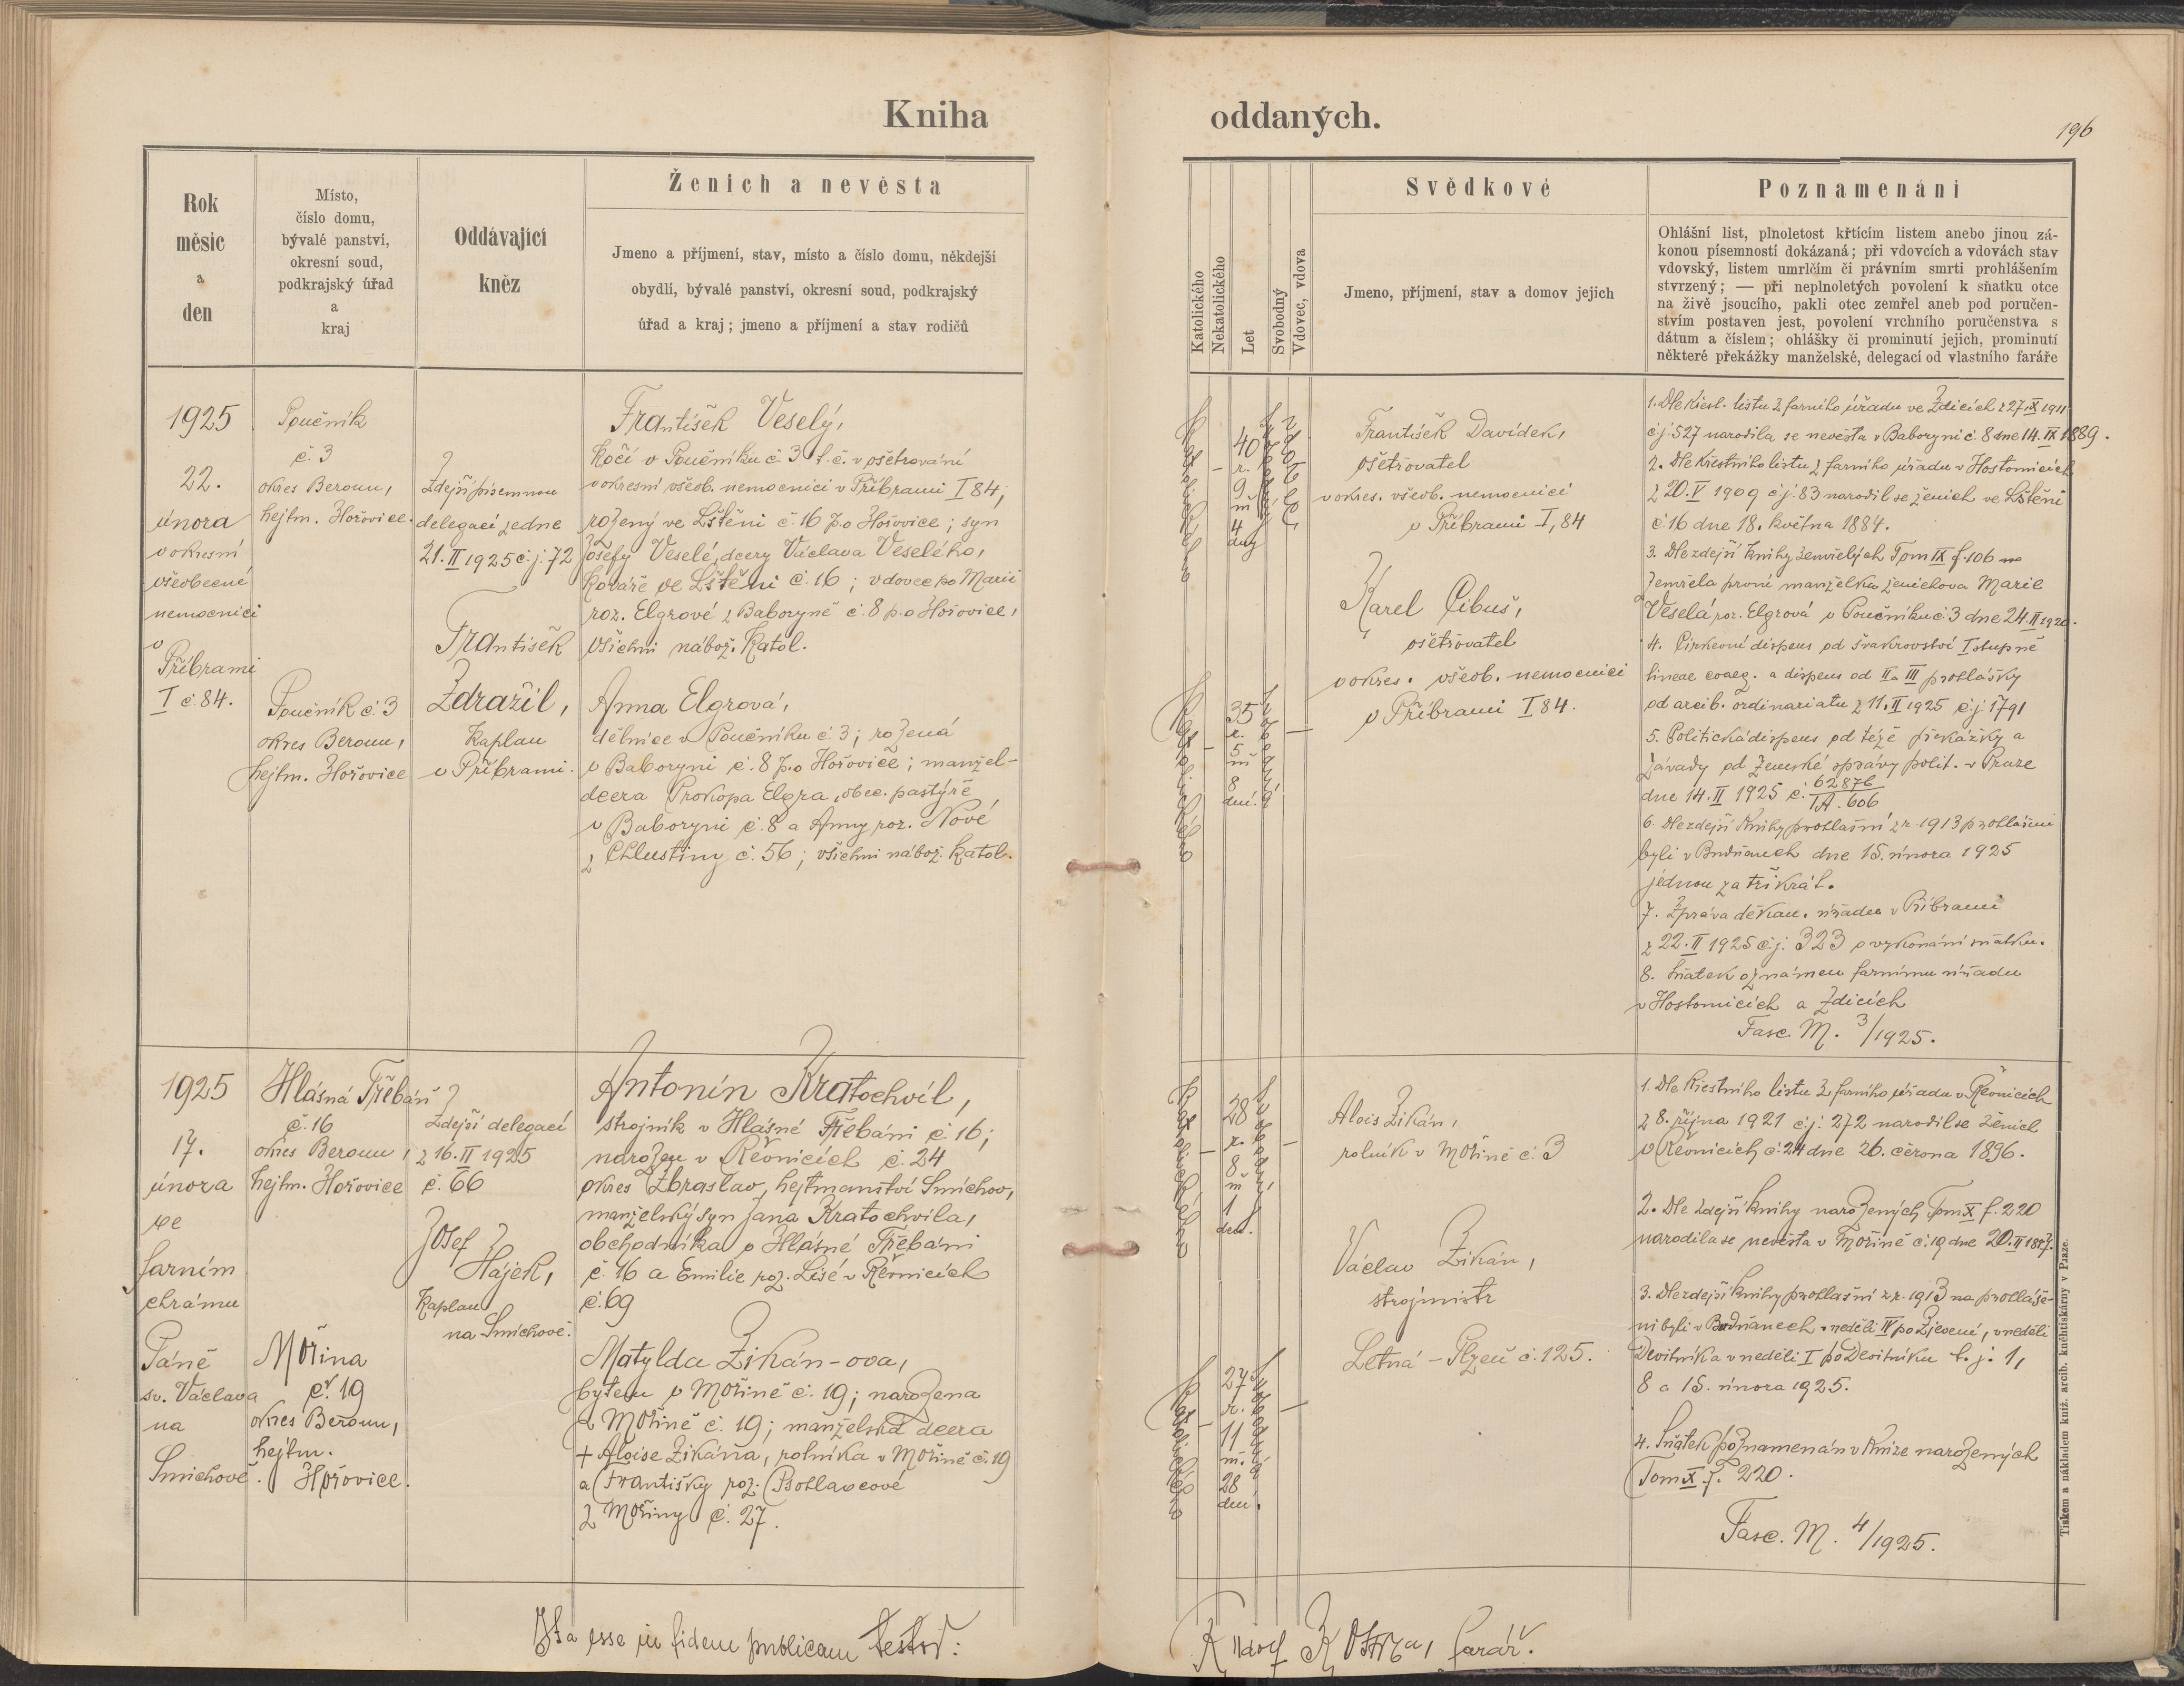 Kniha
oddaných.
196
Rok
měsíc
a
den
Místo,
číslo domu,
bývalé panství,
okresní soud,
podkrajský úřad
a
kraj
Oddávající
kněz
Ženich a nevěsta
Jmeno a příjmení, stav, místo a číslo domu, někdejší
obydlí, bývalé panství, okresní soud, podkrajský
úřad a kraj; jmeno a příjmení a stav rodičů
Katolického
Nekatolického
Let
Svobodný
Vdovec, vdova
Svědkové
Jmeno, příjmení, stav a domov jejich
Poznamenání
Ohlášní list, plnoletost křtícím listem anebo jinou zá-
konou písemností dokázaná; při vdovcích a vdovách stav
vdovský, listem umrlčím či právním smrti prohlášením
stvrzený; — při neplnoletých povolení k sňatku otce
na živě jsoucího, pakli otec zemřel aneb pod poručen-
stvím postaven jest, povolení vrchního poručenstva s
dátum a číslem; ohlášky či prominutí jejich, prominutí
některé překážky manželské, delegací od vlastního faráře
1925
22.
února
v okresní
všeobecné
nemocnici
v
Příbrami
I č. 84.
Poučník
č. 3
okres Beroun,
hejtm. Hořovice.
Poučník č. 3
okres Beroun,
hejtm. Hořovice
Zdejší písemnou
delegací ze dne
21. II 1925 č. j. 72
František
Zdražil,
kaplan
v Příbrami.
František Veselý,
kočí v Poučníku č. 3 t. č. v ošetřování
v okresní všeob. nemocnici v Příbrami I 84;
rozený ve Lštěni č. 16 p. o Hořovice; syn
Josefy Veselé, dcery Václava Veselého,
kováře ve Lštěni č. 16; vdovec po Marii
roz. Elgrové z Baboryně č. 8 p. o Hořovice,
všichni nábož. katol.
Anna Elgrová,
dělnice v Poučníku č. 3; rozená
v Baboryni č. 8 p. o Hořovice; manžel-
dcera Prokopa Elgra, obec. pastýře
v Baboryni č. 8 a Anny roz. Nové
z Chlustiny č. 56; všichni nábož. katol.
katolického
40
r.
9
m
4
dny
vdovec
katolického
35
r.
5
m
8
dní.
svobodná
František Davídek,
ošetřovatel
v okres. všeob. nemocnici
v Příbrami I, 84
Karel Cibuš,
ošetřovatel
v okres. všeob. nemocnici
v Příbrami I 84.
1. Dle křest. listu z farního úřadu ve Zdicích z 27. IX 1911
č j. 527 narodila se nevěsta v Baboryni č. 8 dne 14. IX 1889.
2. Dle křestního listu z farního úřadu v Hostomicích
z 20. V 1909 č j. 83 narodil se ženich ve Lštěni
č 16 dne 18. května 1884.
3. Dle zdejší knihy zemřelých Tom IX f. 106
zemřela první manželka ženichova Marie
Veselá roz. Elgrová v Poučníku č 3 dne 24. II 1920.
4. Církevní dispens od švakrovství I stupně
lineae coaeq. a dispens od II a III prohlášky
od arcib. ordinariatu z 11. II 1925 č. j 1791
5. Politická dispens od téže překážky a
závady od Zemské správy polit. v Praze
dne 14. II 1925 č. 62876
IA. 606
6. Dle zdejší knihy prohlášní z r. 1913 prohlášeni
byli v Budňanech dne 15. února 1925
jednou za třikrát.
7. Zpráva děkan. úřadu v Příbrami
z 22. II 1925 č. j. 323 o vykonání sňatku.
8. Sňatek oznámen farnímu úřadu
v Hostomicích a Zdicích
Fasc. M. 3/1925.
1925
17.
února
ve
farním
chrámu
Páně
sv. Václava
na
Smíchově.
Hlásná Třebáň
č. 16
okres Beroun,
hejtm. Hořovice
Mořina
č. 19
okres Beroun,
hejtm.
Hořovice.
Zdejší delegací
z 16. II 1925
č. 66
Josef
Hájek,
kaplan
na Smíchově.
Antonín Kratochvíl,
strojník v Hlásné Třebáni č. 16;
narozen v Řevnicích č. 24
okres Zbraslav, hejtmanství Smíchov,
manželský syn Jana Kratochvíla,
obchodníka v Hlásné Třebáni
č. 16 a Emilie roz. Lisé v Řevnicích
č. 69
Matylda Zikán-ova,
bytem v Mořině č. 19; narozena
v Mořině č. 19; manželská dcera
+ Aloise Zikána, rolníka v Mořině č. 19
a Františky roz. Psohlavcové
z Mořiny č. 27.
katolického
28
r.
8
m
1
den.
katolického
27
r.
11
m.
28
dní.
Alois Zikán,
rolník v Mořině č. 3
Václav Zikán,
strojmistr
Letná – Plzeň č. 125.
1. Dle křestního listu z farního úřadu v Řevnicích
z 8. října 1921 č j. 272 narodil se ženich
v Řevnicích č. 24 dne 26. června 1896.
2. Dle zdejší knihy narozených Tom X f. 220
narodila se nevěsta v Mořině č. 19 dne 20. II 1897.
3. Dle zdejší knihy prohlášní z r. 1913 na prohláše-
ni byli v Budňanech v neděli IV po Zjevení, v neděli
Devítníka v neděli I po Devítníku t. j. 1,
8 a 15. února 1925.
4. Sňatek poznamenán v knize narozených
Tom X. f. 220.
Fasc. M. 4/1925.
Tiskem a nákladem kníž. arcib. knihtiskárny v Praze.
Ita esse in fidem publicam testor:
farář.